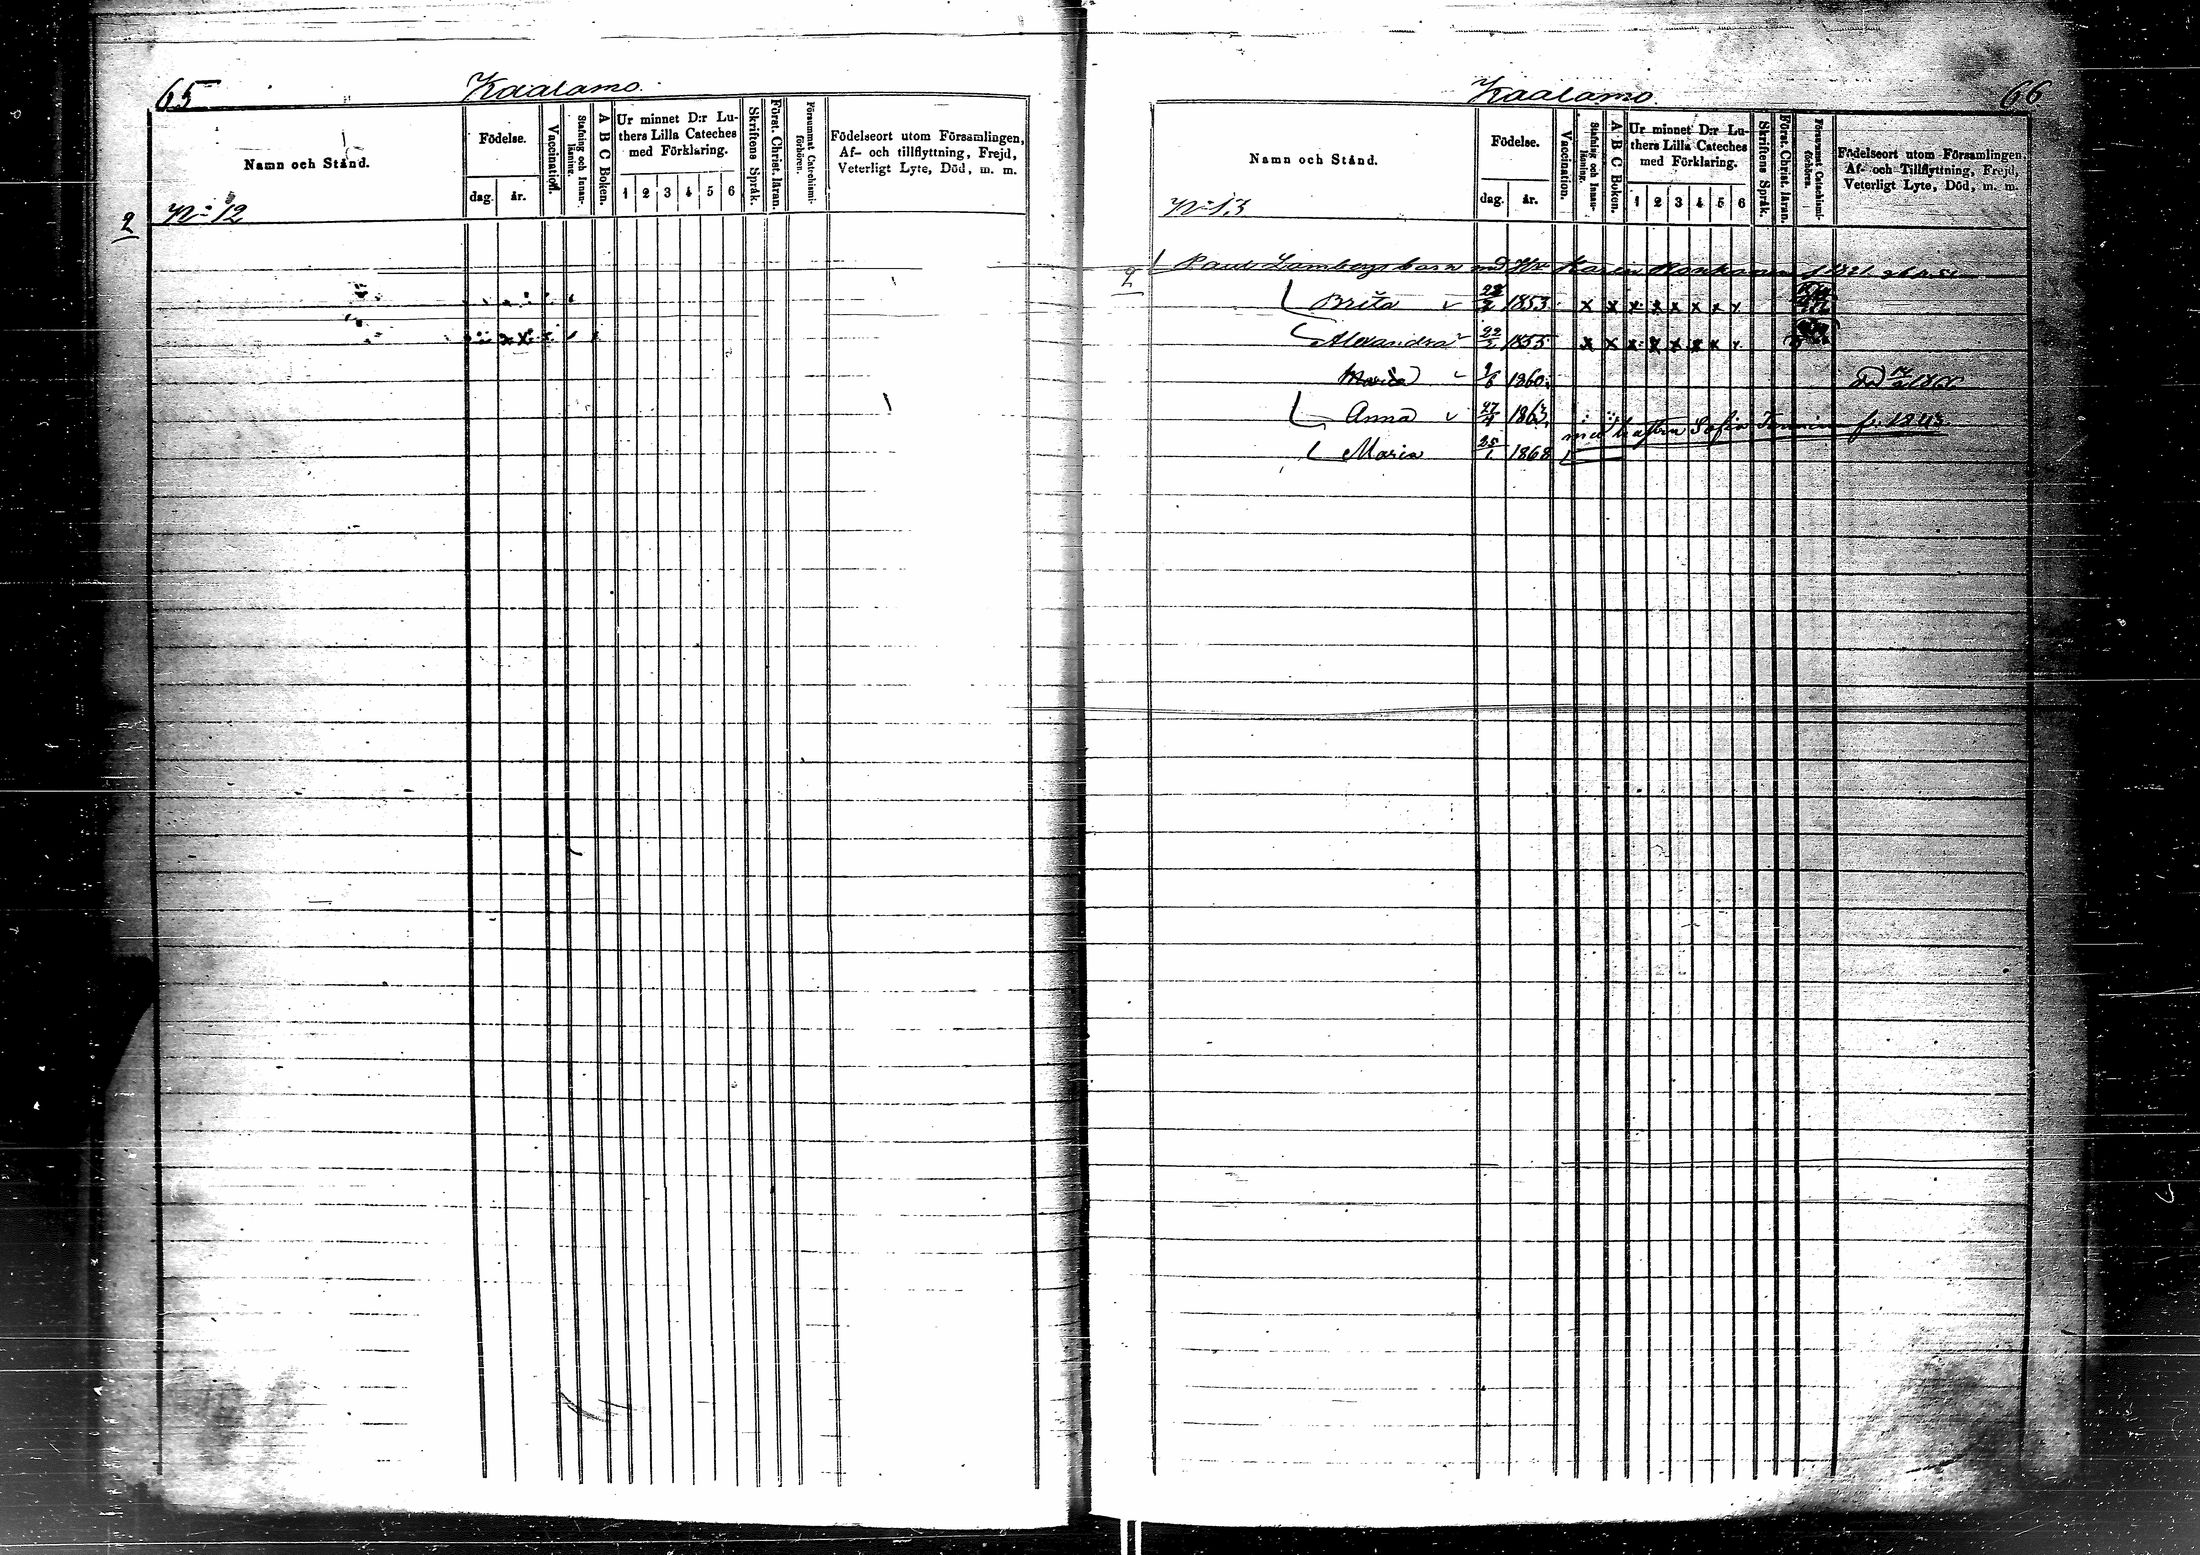 65
Kaalamo.
Namn och Stånd.
Födelse.
dag.
år.
Vaccination.
Stafning och Innan-
läsning.
A B C Boken.
Ur minnet D:r Lu-
thers Lilla Cateches
med Förklaring.
1 2 3 4 5 6
Skriftens Språk.
Först. Christ. läran.
Försummat Catechismi-
förhören.
Födelseort utom Församlingen,
Af- och tillflyttning, Frejd,
Veterligt Lyte, Död, m. m.
2
No 12
Kaalamo.
66
Namn och Stånd.
Födelse.
dag.
år.
Vaccination.
Stafning och Innan-
läsning.
A B C Boken.
Ur minnet D:r Lu-
thers Lilla Cateches
med Förklaring.
1 2 3 4 5 6
Skriftens Språk.
Först. Christ. läran.
Försummat Catechismi-
förhören.
Födelseort utom Församlingen,
Af- och Tillflyttning, Frejd,
Veterligt Lyte, Död, m. m.
No 13
2
Paul Lambergs barn med Hu Karin f 1821
Brita 1853 x x x x x x x x
Alexandra 22/2 1855 x x x x x x x x
Maria 1860
Anna 27/4 1863
med hustru Sofia f. 1843.
Maria 25/1 1868